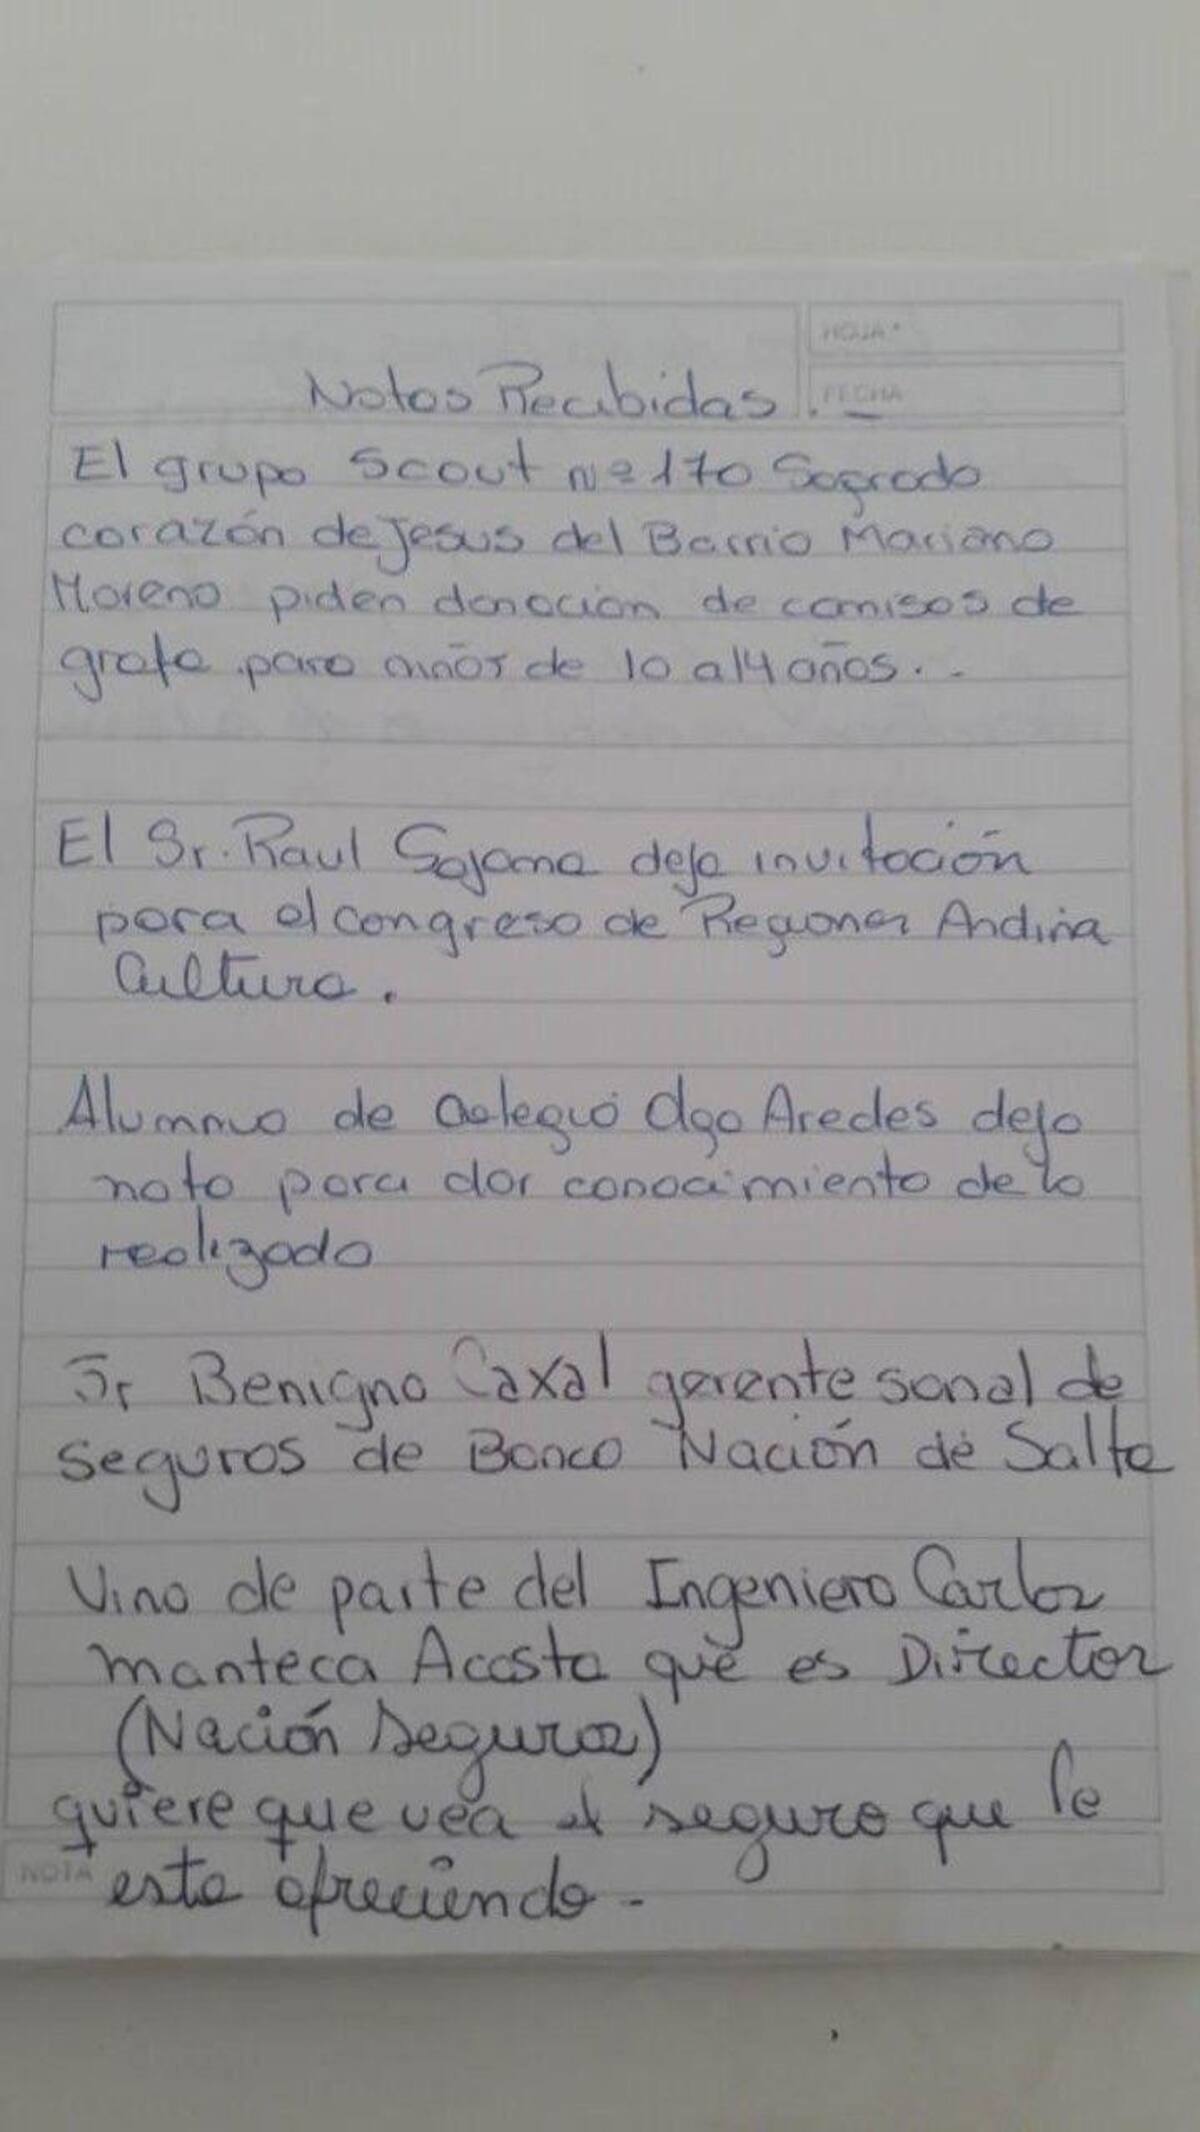 HOJA
Notas Recibidas .-
FECHA
El grupo Scout Nº 170 Sagrado
corazón de Jesus del Barrio Mariano
Moreno piden donación de camisas de
grafa para niños de 10 a 14 años. -
El Sr. Raul Sajama deja invitación
para el congreso de Regiones Andina
Cultura.
Alumno de colegio Olga Aredes dejo
nota para dar conocimiento de lo
realizado
Sr Benigno Caxal gerente sonal de
seguros de Banco Nación de Salta
Vino de parte del Ingeniero Carlos
manteca Acosta que es Director
(Nación Seguros)
quiere que vea el seguro que le
NOTA
esta ofreciendo -